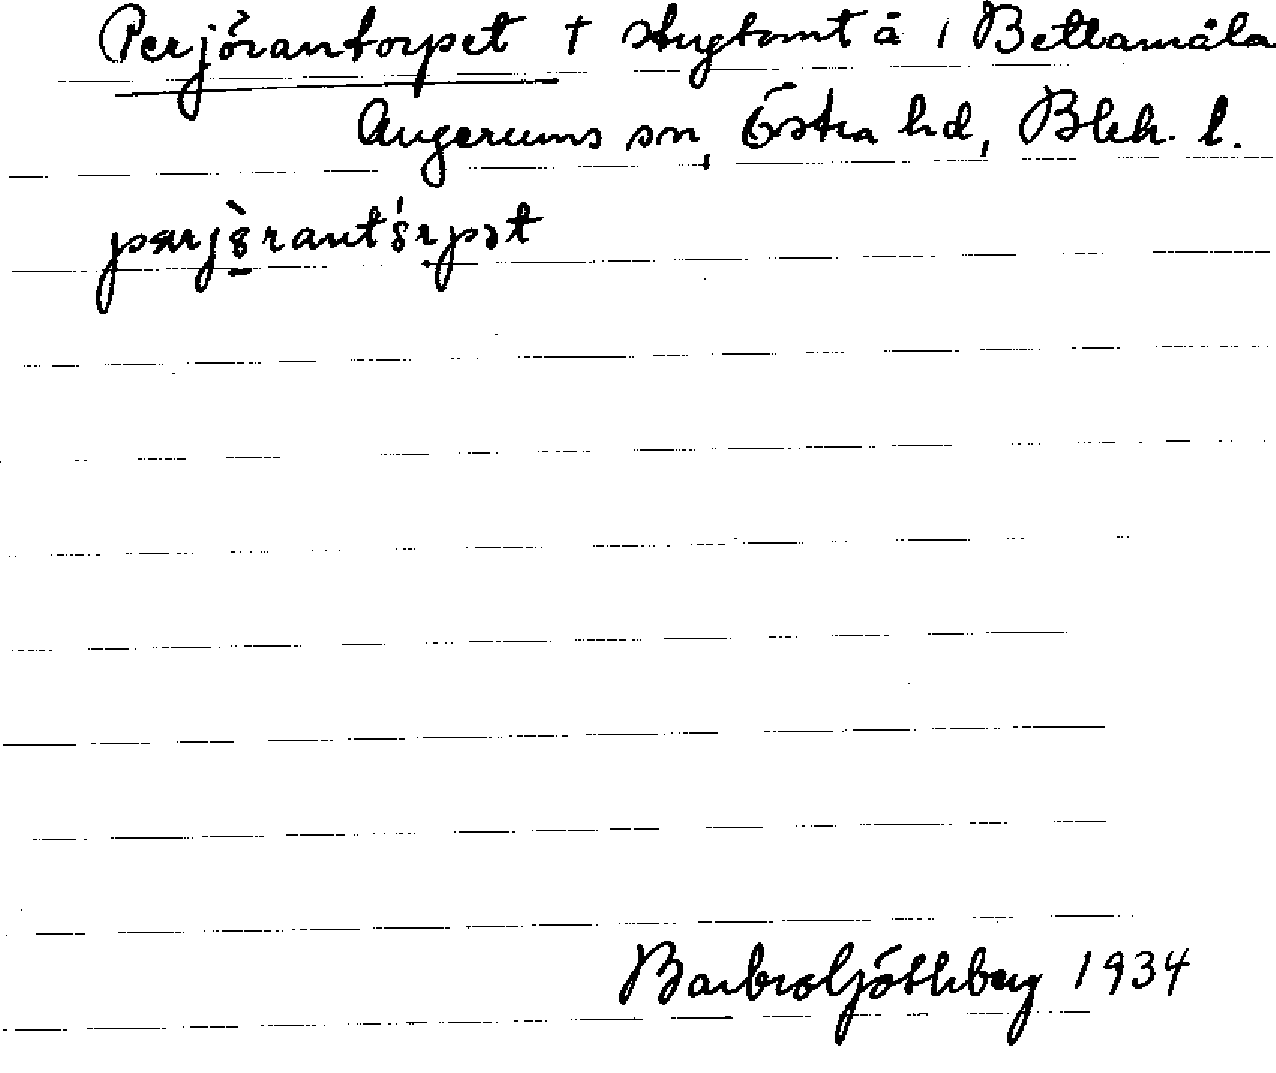 Perjörantorpet † stugtomt å i Bettamåla
Augerums sn, Östra hd, Blek. l.
pærjòrantórpət
Barbro Götherberg 1934